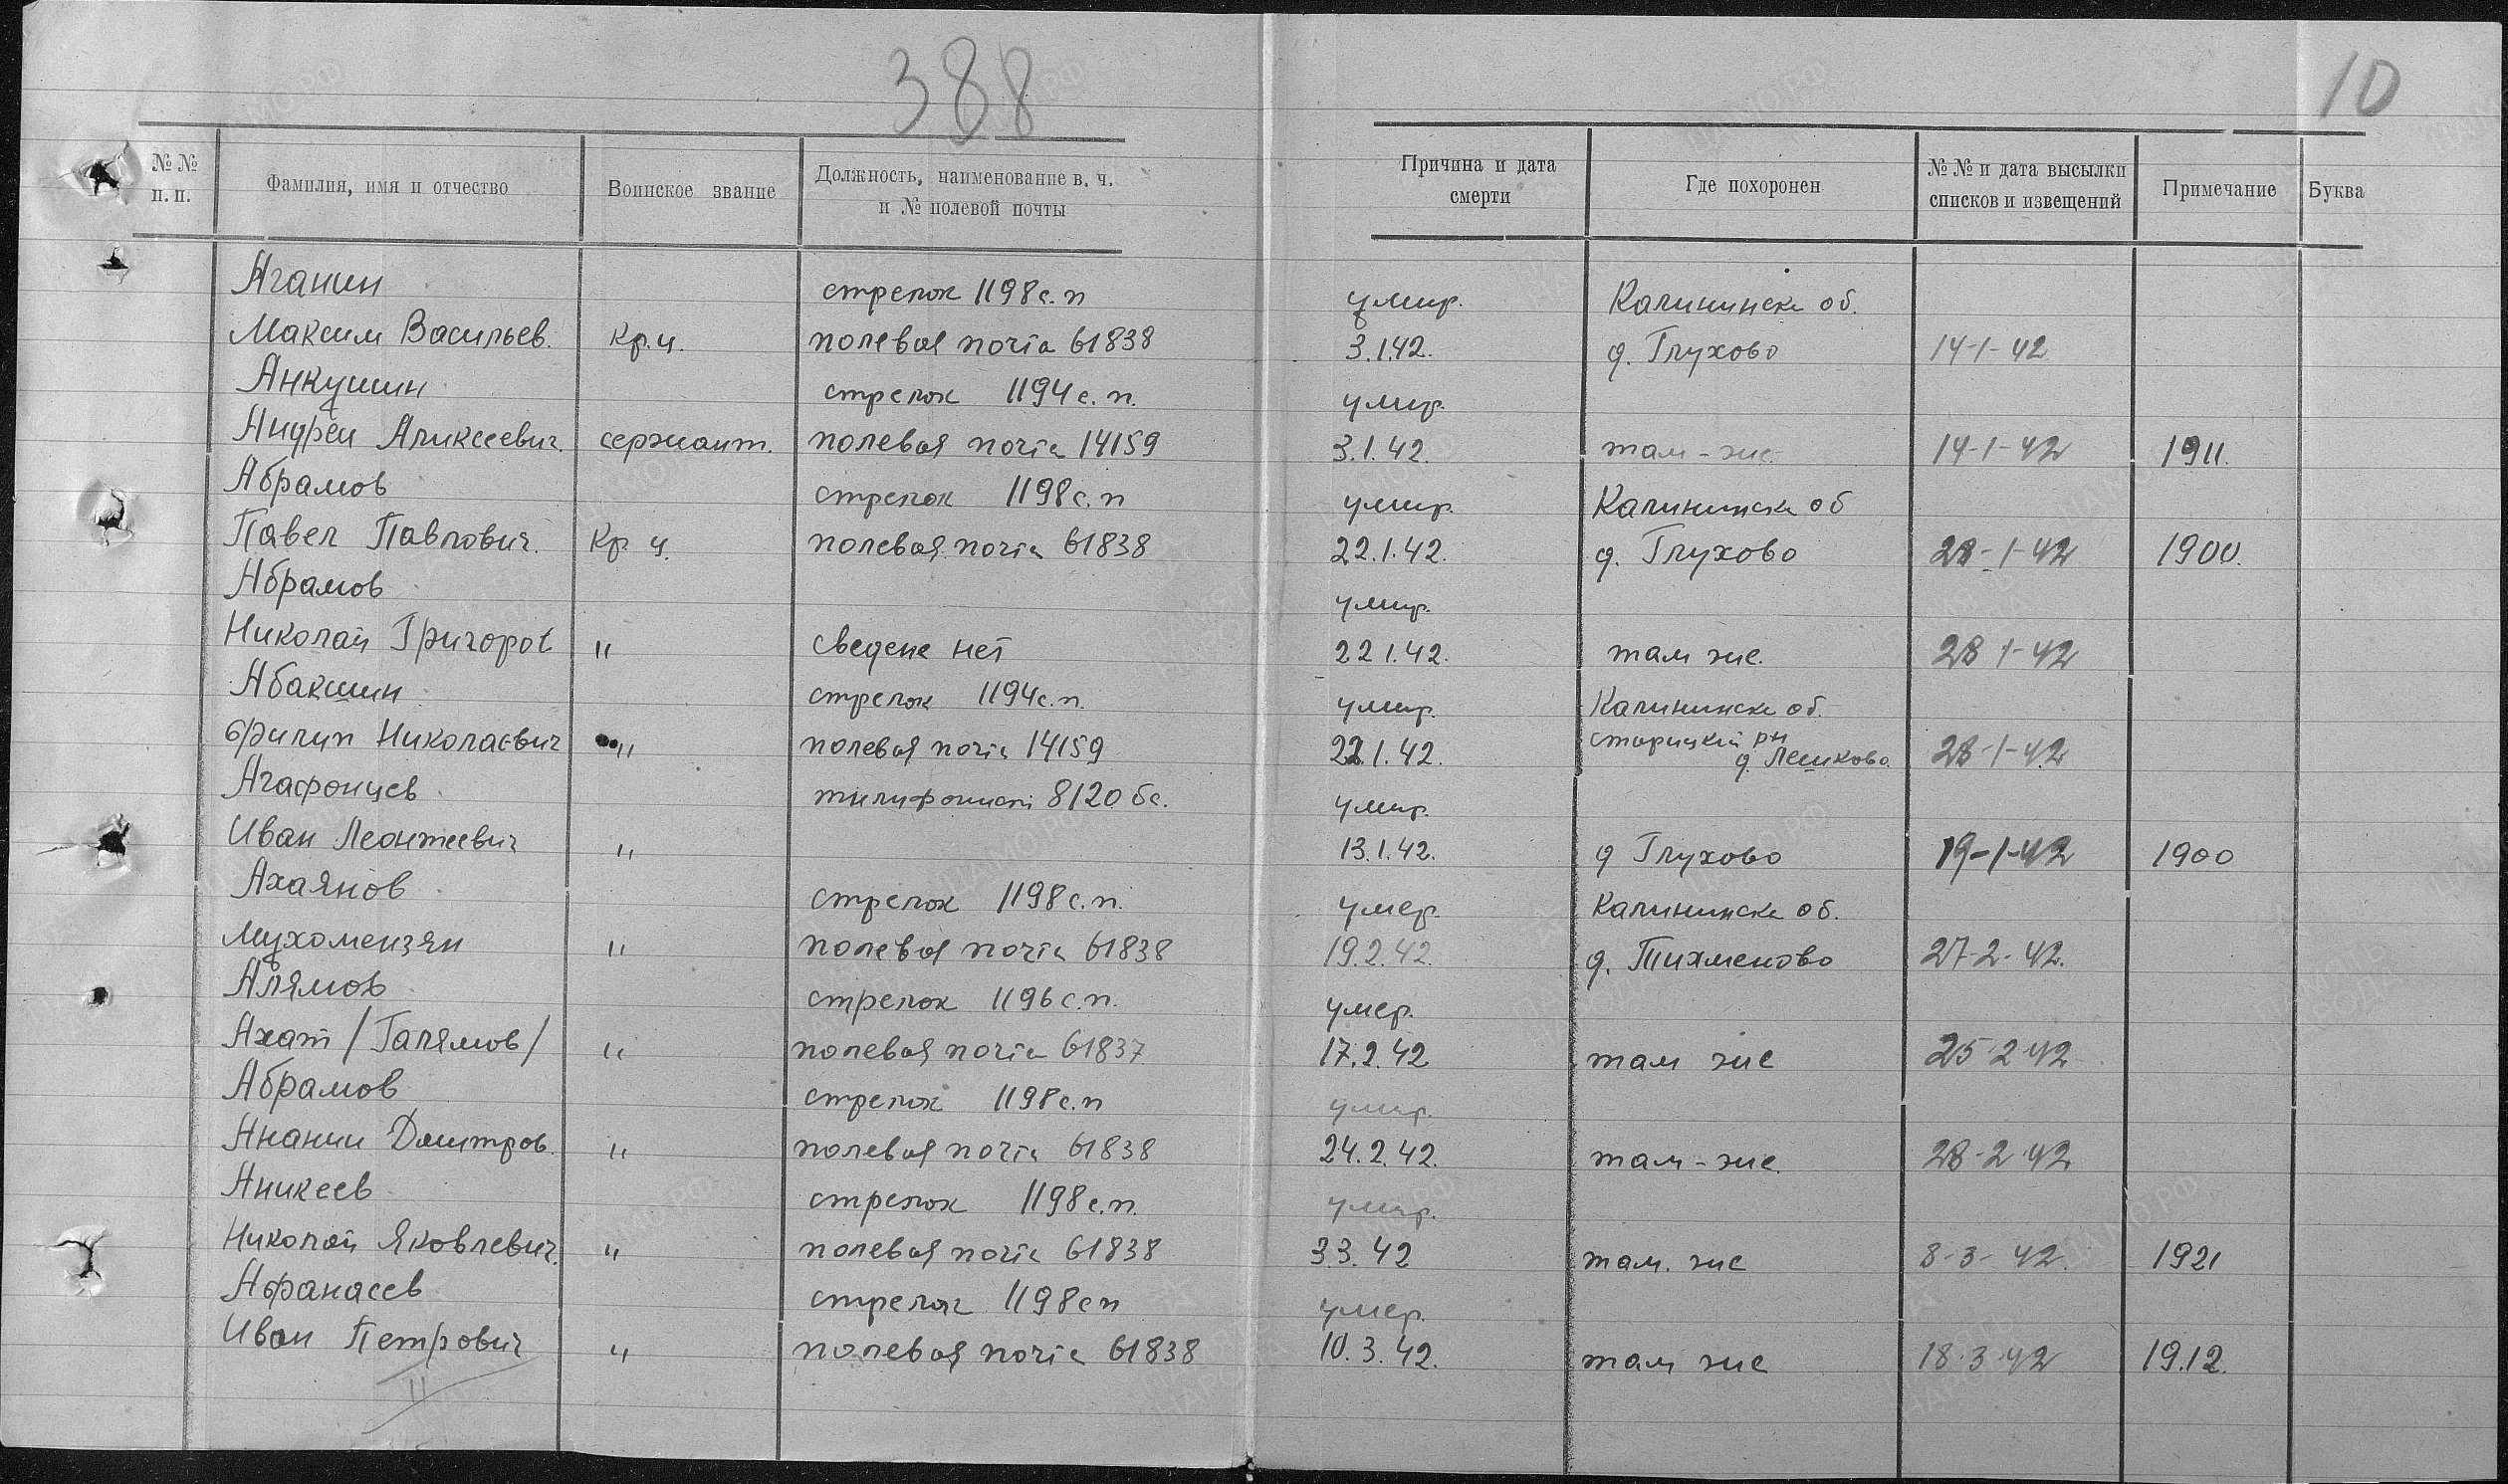 388
10
№ № п. п.
Фамилия, имя и отчество
Воинское звание
Должность, наименование в. ч. и № полевой почты
Причина и дата смерти
Где похоронен
№ № и дата высылки списков и извещений
Примечание
Буква
Аганин стрелок 1198 с.п умир. Калининск об.
Максим Васильев. Кр.ц. полевая почта 61838 3.1.42. д. Глухово 14-1-42
Анкушин стрелок 1194 с.п. умир.
Андрей Аликсеевич. сержант. полевая почта 14159 3.1.42. там-же. 14-1-42 1911.
Абрамов стрелок 1198 с.п умир. Калининск об
Павел Павлович. Кр ц. полевая почта 61838 22.1.42. д. Глухово 28-1-42 1900.
Абрамов умир.
Николай Григоров " сведене нет 22 1.42. там же. 28 1-42
Абакшин стрелок 1194 с.п. умир. Калининск об.
Филип Николаевич " полевая почта 14159 22.1.42. старицкий рн д. Лешково. 28-1-42
Агафонцев тилифонист 8120 бс. умир.
Иван Леонтеевич " 13.1.42. д Глухово 19-1-42 1900
Ахаянов стрелок 1198 с.п. умер. Калининск об.
Мухомензян " полевая почта 61838 19.2.42. д. Тихменово 27-2-42.
Алямов стрелок 1196 с.п. умер.
Ахат /Галямов/ " полевая почта 61837 17.2.42 там же 25 2 42
Абрамов стрелок 1198 с.п умир.
Анании Дмитров. " полевая почта 61838 24.2.42. там-же. 28-2 42
Аникеев стрелок 1198 с.п. умир.
Николай Яковлевич. " полевая почта 61838 3.3.42 там. же 8-3-42. 1921
Афанасев стрелок 1198 сп умер.
Иван Петрович " полевая почта 61838 10.3.42. там же 18.3.42 19.12.
11